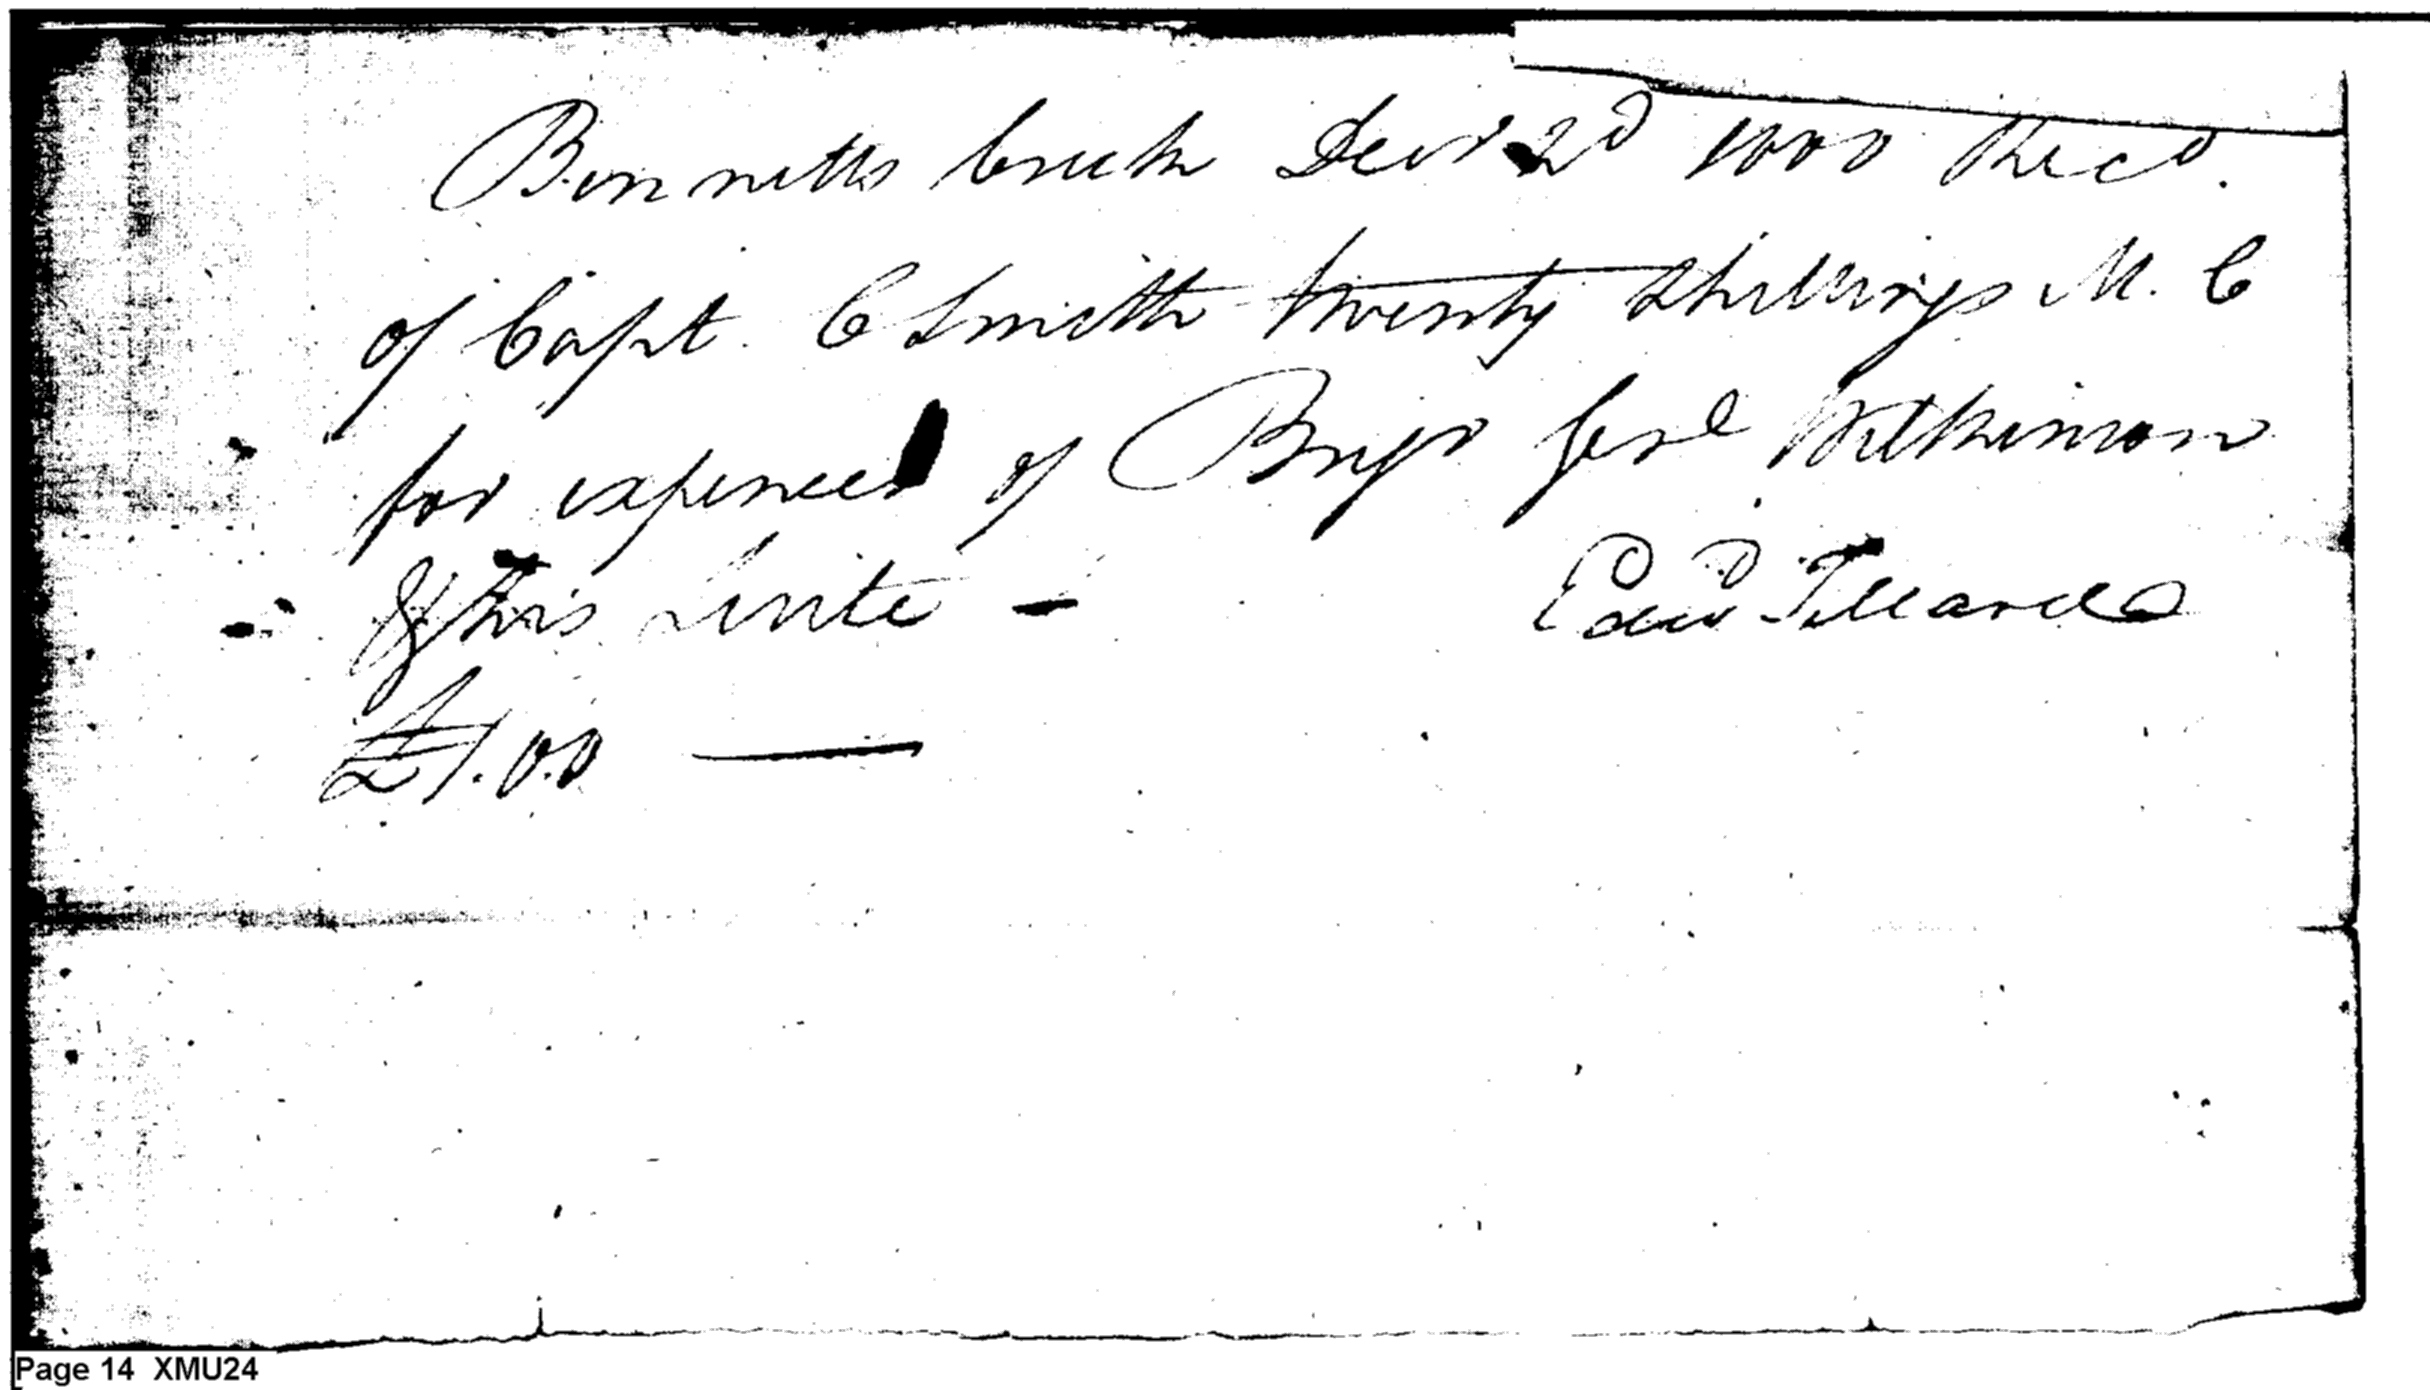 Bennetts Creek Decr 2d 1800 Recd.
of Capt. C Smith twenty Shillings M. C
for expences of Brigr Genl Wilkinson
& his Suite -
Edwd Tillard
£1.0.0
Page 14 XMU24